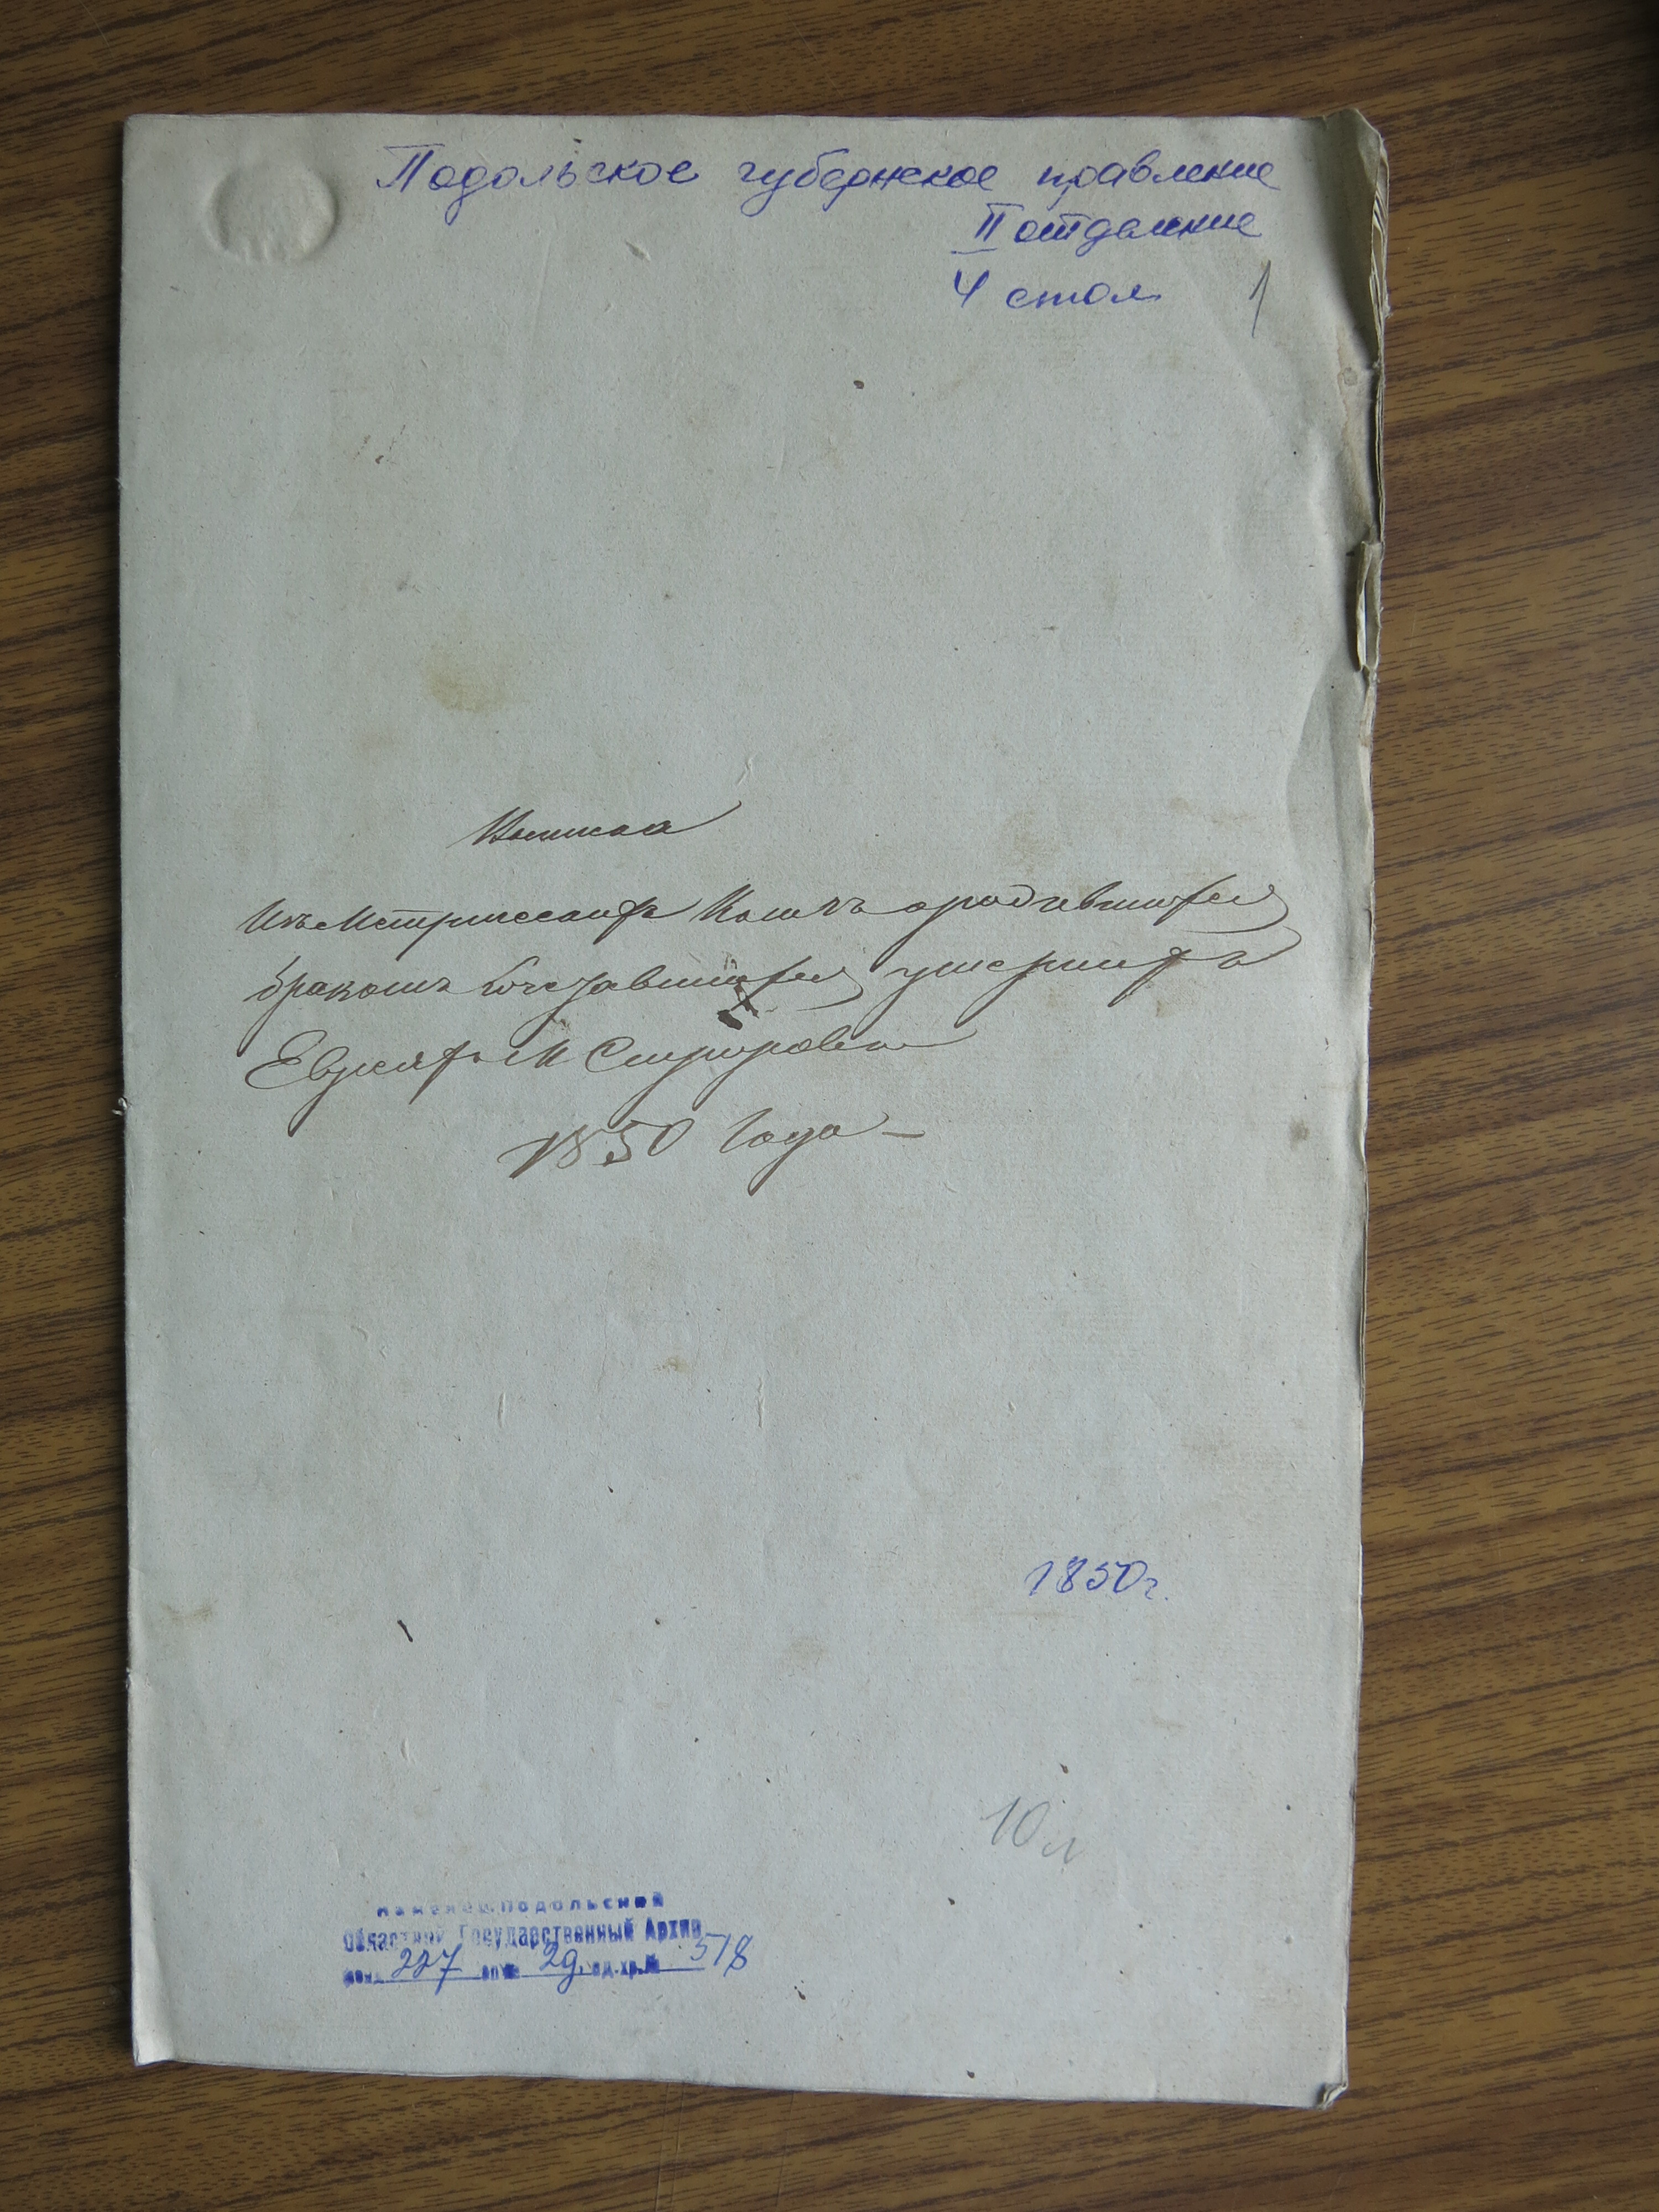 Подольское губернское правление
II отделение
4 стол
1
Изъ Метрическихъ Книгъ ородившихся
бракомъ Сочетавшихся умершихъ
Евреяхъ М
1850 Года —
1850г.
10 л
Каменец-Подольский
Областной Государственный Архив
Фонд 227 опись 2д. ед.хр.№ 518